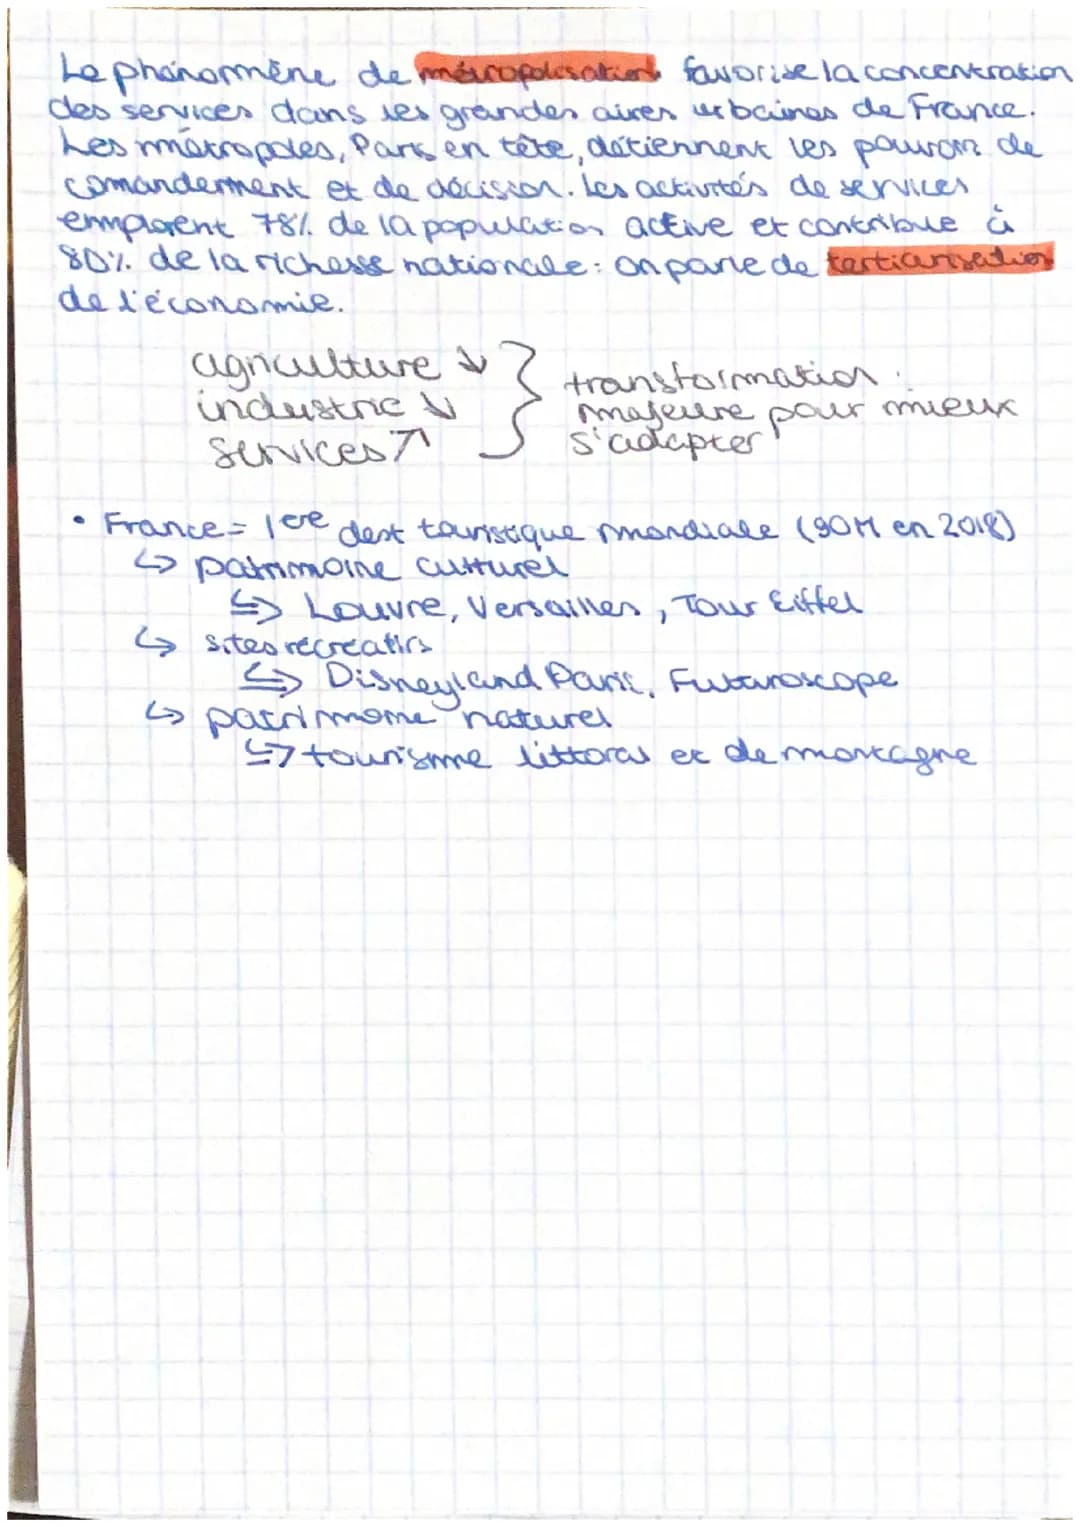 Le phénomène de métropolisation favorise la concentration
des services dans les grandes aires urbaines de France.
Les métropoles, Paris en tête, détiennent les pouvoir de
comandement et de décision. Les activités de services
emploient 78% de la population active et contribue à
80% de la richesse nationale : on parle de tertiarisation
de l'économie.
agriculture ↘ }
industrie ↘ } transformation
majeure pour mieux
services ↗ } s'adapter
• France = 1ère dest touristique mondiale (90M en 2018)
↳ patrimoine culturel
↳ Louvre, Versailles, Tour Eiffel
↳ sites récréatifs
↳ Disneyland Paris, Futuroscope
↳ patrimoine naturel
↳ tourisme littoral et de montagne